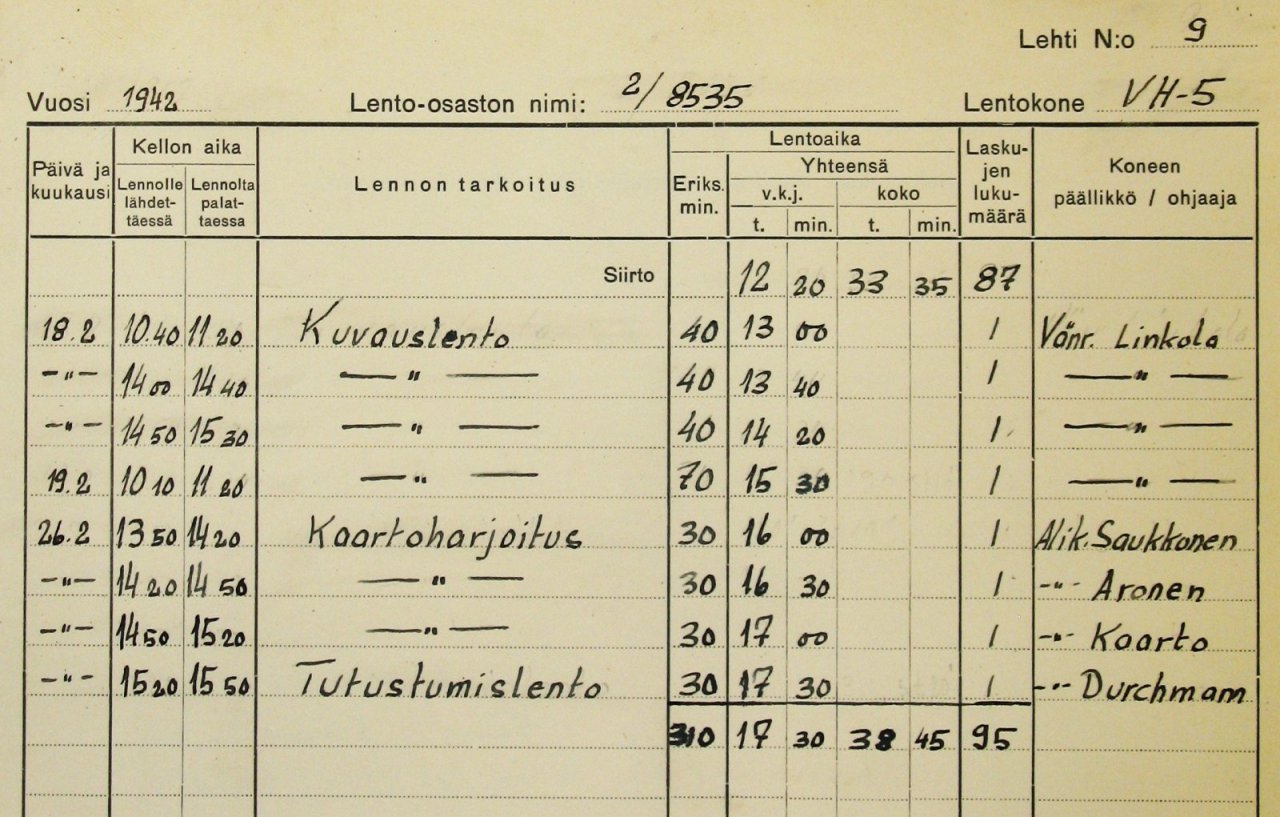 Lehti N:o 9
Vuosi 1942 Lento-osaston nimi: 2/8535 Lentokone VH-5
Päivä ja kuukausi Kellon aika Lennolle lähdettäessä Lennolta palattaessa Lennon tarkoitus Lentoaika Eriks. min. Yhteensä v.k.j. t. min. koko t. min. Laskujen lukumäärä Koneen päällikkö / ohjaaja
Siirto 12 20 33 35 87
18.2 10 40 11 20 Kuvauslento 40 13 00 1 Vänr. Linkola
-"- 14 00 14 40 -"- 40 13 40 1 -"-
-"- 14 50 15 30 -"- 40 14 20 1 -"-
19.2 10 10 11 20 -"- 70 15 30 1 -"-
26.2 13 50 14 20 Kaartoharjoitus 30 16 00 1 Alik. Saukkonen
-"- 14 20 14 50 -"- 30 16 30 1 -"- Aronen
-"- 14 50 15 20 -"- 30 17 00 1 -"- Kaarto
-"- 15 20 15 50 Tutustumislento 30 17 30 1 -"- Durchmam
310 17 30 38 45 95